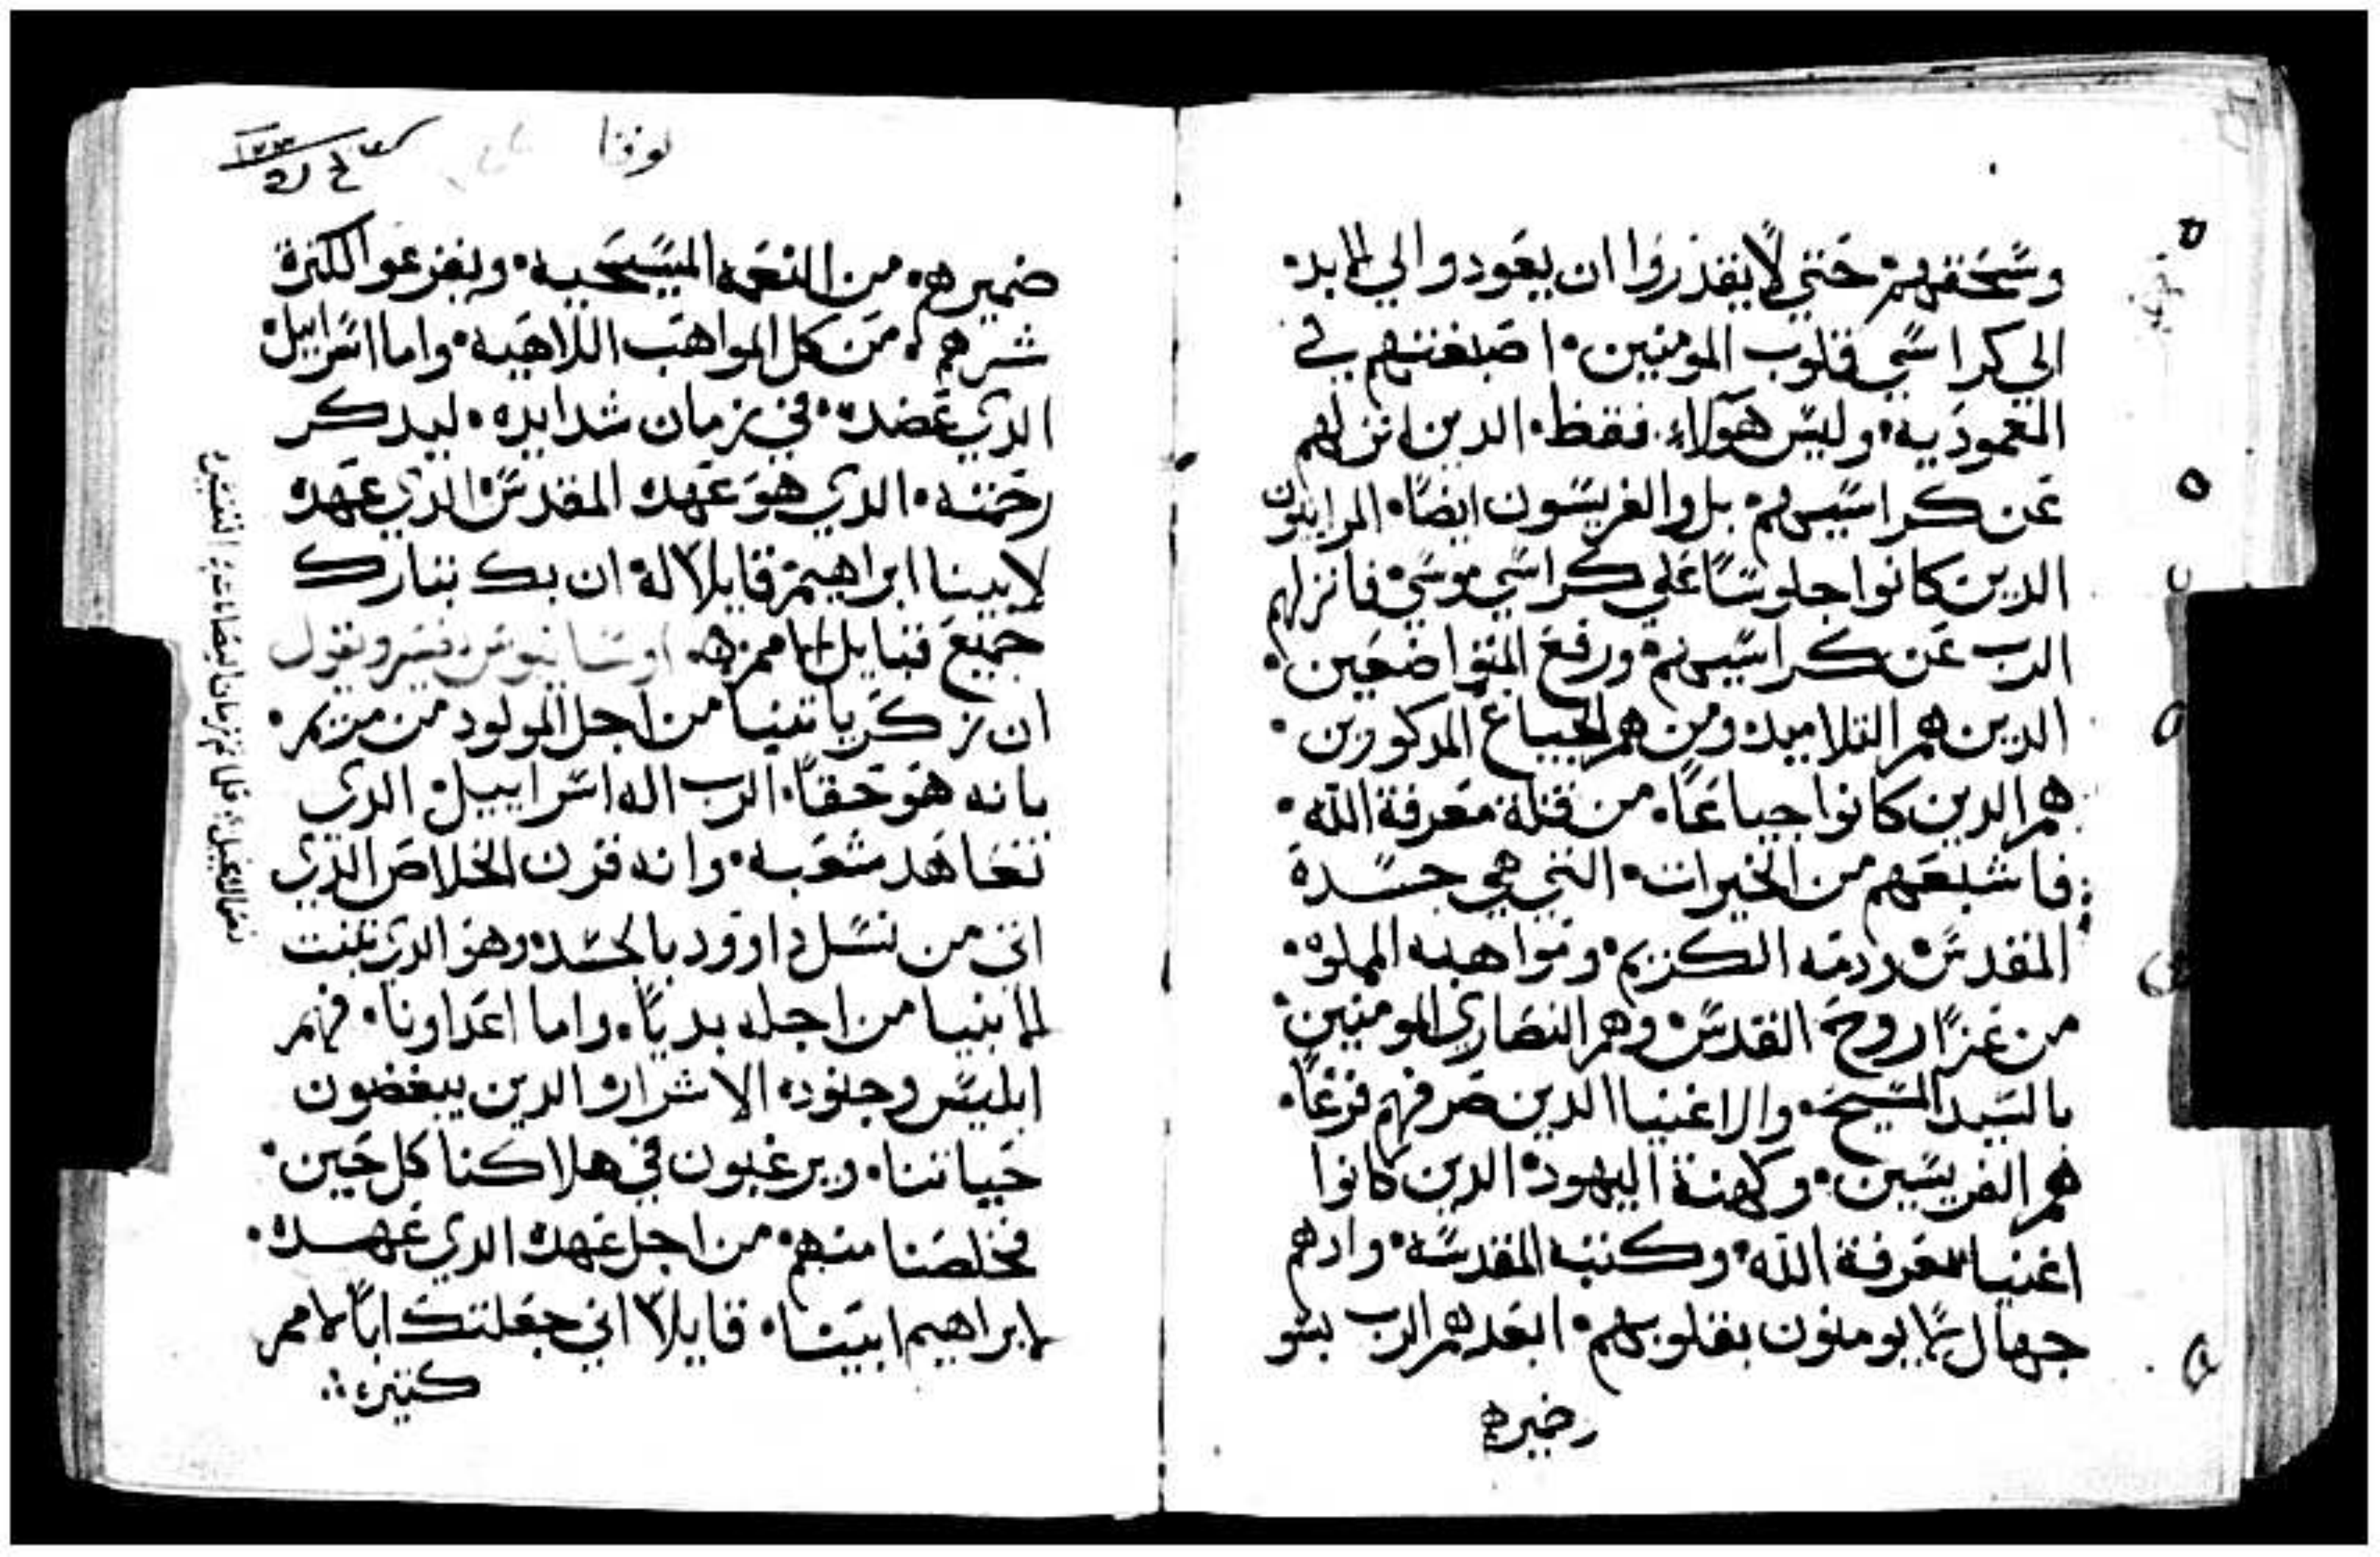 وسحقهم حتي لا يقدروا ان يعودوا الي الابد.
الي كراسي قلوب المومنين. اصبغتهم في
المعموديه. وليس هولاء. فقط. الدين انزلهم
عن كراسيهم. بل والفريسون ايضا. المرايون
الدين كانوا جلوسا علي كراسي موسي. فانزلهم
الرب عن كراسيهم. ورفع المتواضعين.
الدين هم التلاميد ومن هم الجياع المدكورين.
هم الدين كانوا جياعا. من قلة معرفة الله.
فاشبعهم من الخيرات. التي هي جسدة
المقدس. ودمه الكريم. ومواهبه المملوه.
من عزا روح القدس. وهم النصاري المومنين.
بالسيد المسيح. والاغنيا الدين صرفهم فرغا.
هم الفريسين. وكهنة اليهود. الدين كانوا
اغنيا بمعرفة الله. وكتبه المقدسه. وادهم
جهال لا يومنون بقلوبهم. ابعدهم الرب بسو
ضميرهم
لوقا
ضميرهم. من النعمه المسيحيه. وبفرعوا لكترة
شرهم. من كل المواهب اللاهيه. واما اسراييل.
الدي عضده. في زمان شدايده. ليدكر
رحمته. الدي هو عهده المقدس. الدي عهده
لابينا ابراهيم. قايلا له. ان بك تبارك
جميع قبايل الامم. اوسابيوس. يفسر ويقول
ان زكريا تنبا من اجل المولود من مريم.
بانه هو حقا. الرب اله اسراييل. الدي
تعاهد شعبه. وانه قرن الخلاص الدي
اتي من نسل داوود بالجسد. وهو الدي تنبت
الانبيا من اجله بديا. واما اعداونا. فهم
ابليس وجنوده الاشرار. الدين يبغضون
حياتنا. ويرغبون في هلاكنا كل حين.
فخلصنا منهم. من اجل عهده الدي عهده.
لابراهيم ابينا. قايلا اني جعلتك ابا لامم
كتيره